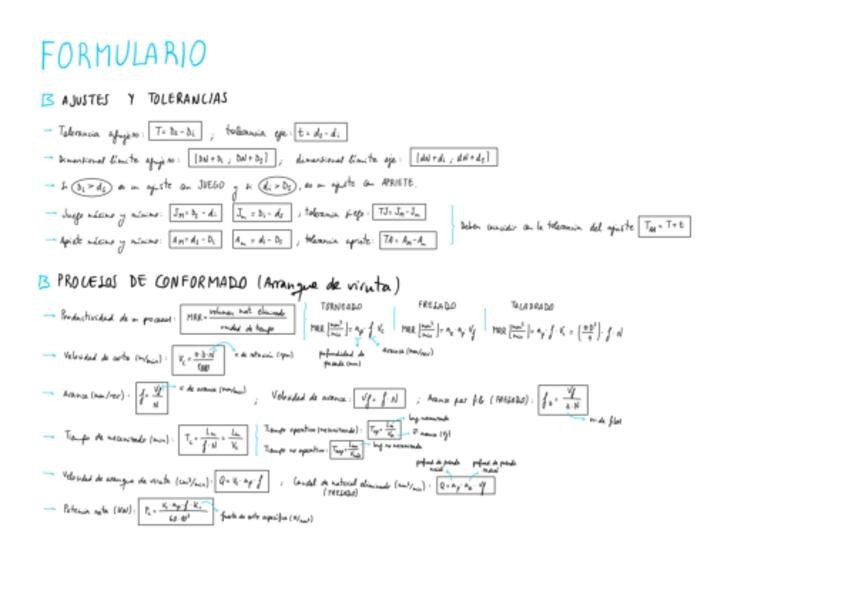 FORMULARIO
AJUSTES Y TOLERANCIAS
→ Tolerancia agujero: T = Ds - Di ; tolerancia eje: t = ds - di
→ Dimensional límite agujero: [DN+Di ; DN+Ds] ; dimensional límite eje: [dN+di ; dN+ds]
→ Si Di > ds es un ajuste con JUEGO y si di > Ds, es un ajuste con APRIETE.
→ Juego máximo y mínimo: JM = Ds - di Jm = Di - ds ; tolerancia juego: TJ = JM - Jm
Deben coincidir con la tolerancia del ajuste TAJ = T + t
→ Apriete máximo y mínimo: AM = ds - Di Am = di - Ds ; tolerancia apriete: TA = AM - Am
PROCESOS DE CONFORMADO (Arranque de viruta)
→ Productividad de un proceso: MRR = volumen mat. eliminado / unidad de tiempo
TORNEADO FRESADO TALADRADO
MRR [mm³/min] = ap · f · Vc MRR [mm³/min] = ae · ap · Vf MRR [mm³/min] = ap · f · Vc = (π·D²/4) · f · N
profundidad de pasada (mm) avance (mm/rev)
→ Velocidad de corte (m/min): Vc = π·D·N / 1000 v de rotación (rpm)
→ Avance (mm/rev): f = Vf / N v de avance (mm/min) ; Velocidad de avance: Vf = f · N ; Avance por filo (FRESADO): fz = Vf / z·N nº de filos
→ Tiempo de mecanizado (min): Tc = Lm / f·N = Lm / Vf
Tiempo operativo (mecanizando): Top = Lm / Va long. mecanizada
V avance (Vf)
Tiempo no operativo: Tnop = long. no mecanizada
→ Velocidad de arranque de viruta (cm³/min): Q = Vc · ap · f ; Caudal de material eliminado (cm³/min): (FRESADO) Q = ap · ae · Vf
→ Potencia neta (kW): Pc = Vc · ap · f · Kc / 60·10³ fuerza de corte específica (N/mm²)